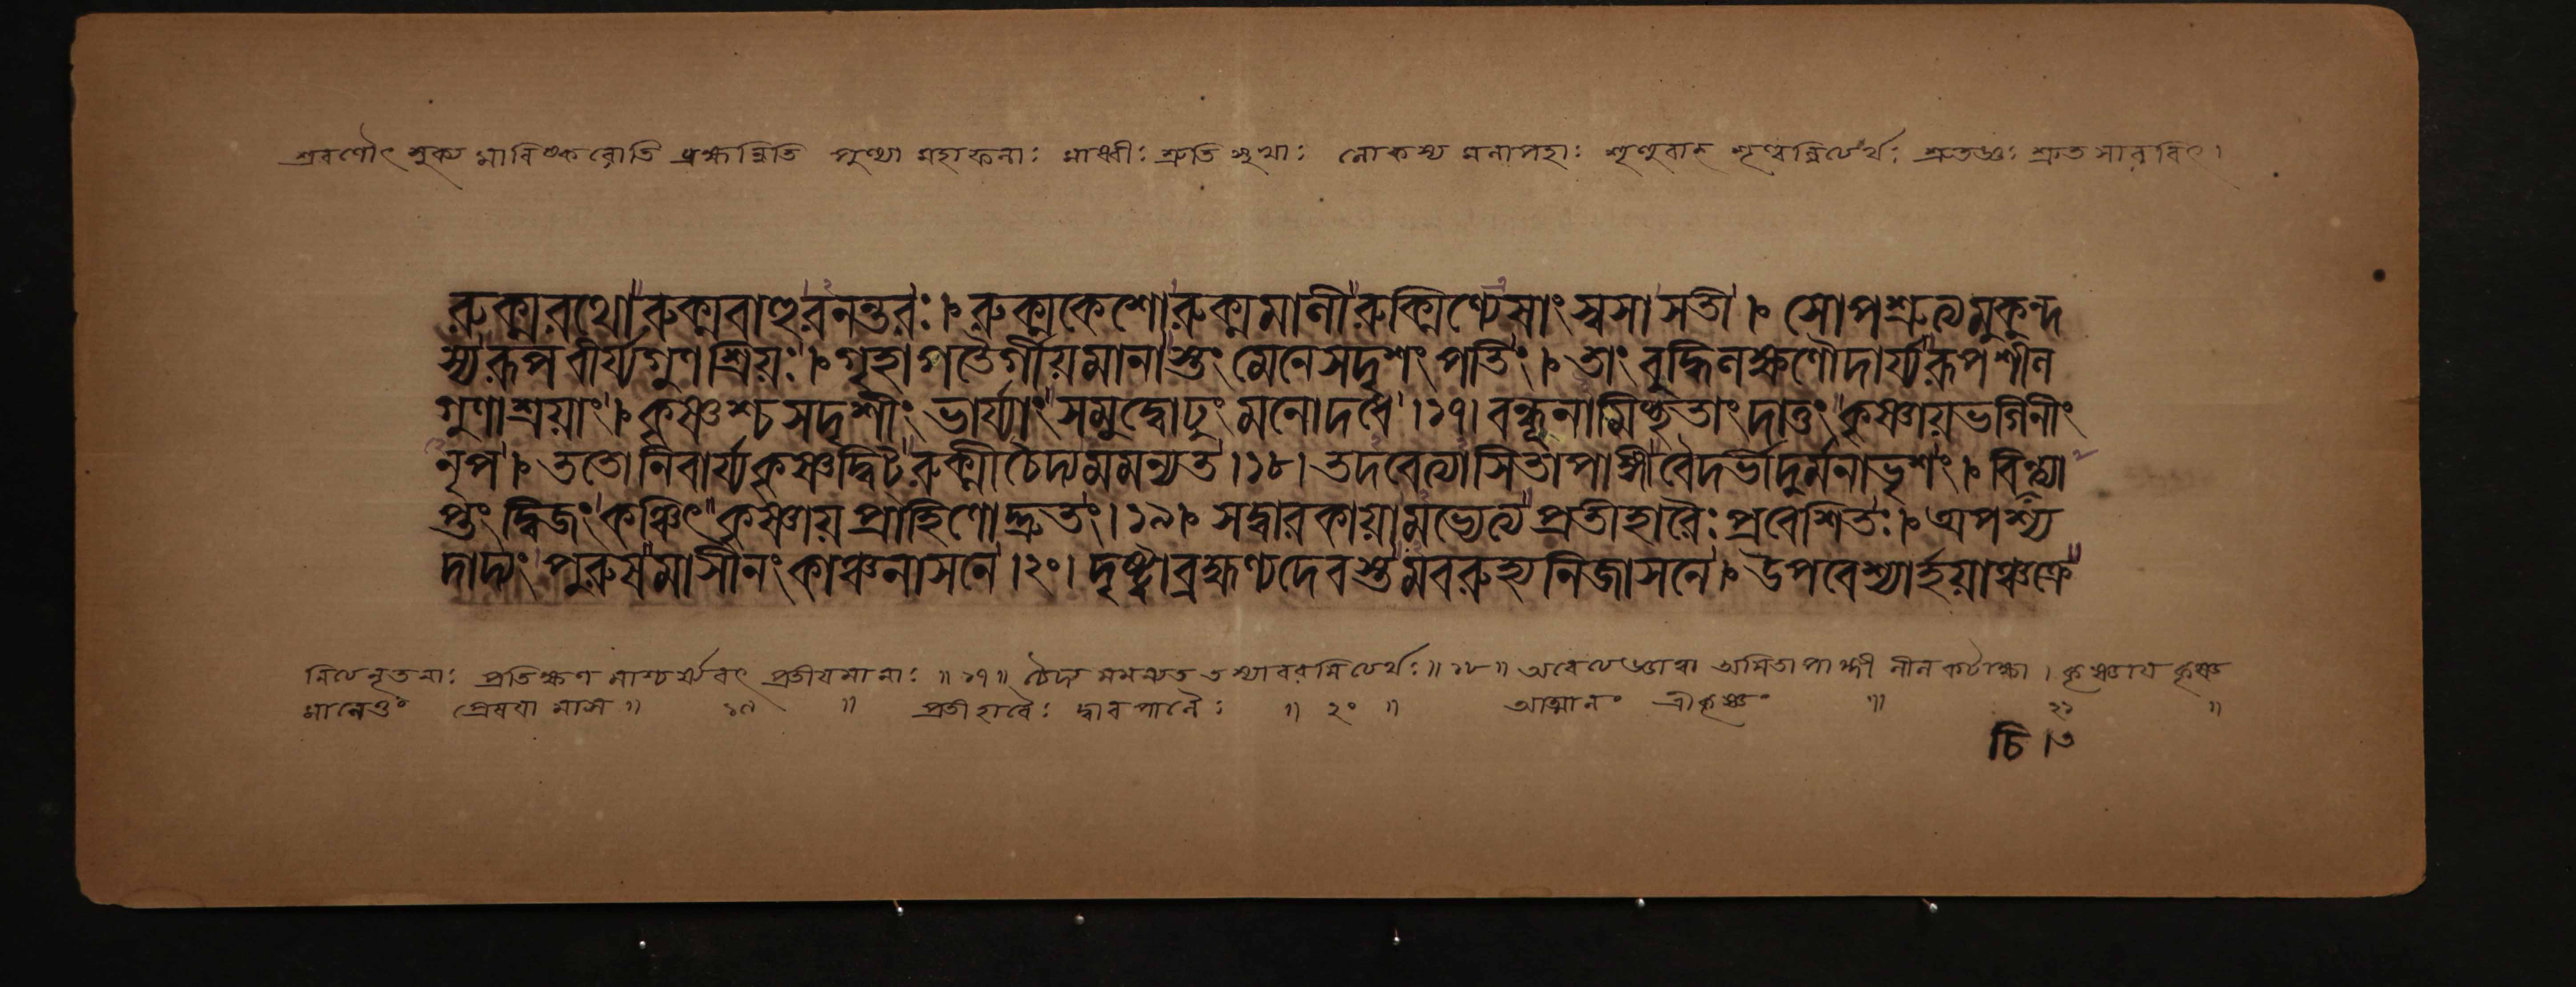 শ্রবণৌৎসুক্য মাবিষ্করোতি ব্রহ্মন্নিতি পুণ্যা মহাফলাঃ মাধ্বীঃ শ্রুতি সুখাঃ লোকস্য মলাপহাঃ শৃণুবান্ শৃণ্বন্নিত্যর্থঃ শ্রুতজ্ঞঃ শ্রুত সারবিৎ।
রুক্মরথো রুক্মবাহুরনন্তরঃ। রুক্মকেশো রুক্মমালী রুক্মিণ্যেষাং স্বসা সতী। সোপশ্রুত্য মুকুন্দ
স্য রূপ বীর্য্যগুণ শ্রিয়ঃ। গৃহাগতৈর্গীয়মানাস্তং মেনে সদৃশং পতিং। তাং বুদ্ধিলক্ষণৌদার্য্য রূপশীল
গুণাশ্রয়াং। কৃষ্ণশ্চ সদৃশীং ভার্য্যাং সমুদ্বোঢুং মনোদধে।১৭। বন্ধূনামিচ্ছতাং দাতুং কৃষ্ণায় ভগিনীং
নৃপ। ততো নিবার্য্য কৃষ্ণদ্বিট্ রুক্মী চৈদ্যমমন্যত।১৮। তদবেত্যাসিতাপাঙ্গী বৈদর্ভী দুর্মনা ভৃশং। বিচিন্ত্যা
প্তং দ্বিজং কঞ্চিৎ কৃষ্ণায় প্রাহিণোদ্দ্রুতং।১৯। স দ্বারকায়ামভ্যেত্য প্রতীহারৈঃ প্রবেশিতঃ। অপশ্য
দাদ্যং পুরুষমাসীনং কাঞ্চনাসনে।২০। দৃষ্ট্বা ব্রহ্মণ্যদেবস্তমবরুহ্য নিজাসনে। উপবেশ্যার্হয়াঞ্চক্রে
নিত্যনূতনাঃ প্রতিক্ষণ মাশ্চর্য্যবৎ প্রতীয়মানাঃ ॥১৭॥ চৈদ্য মমন্যত তস্যাবরমিত্যর্থঃ॥১৮॥ অবেত্য জ্ঞাত্বা অসিতাপাঙ্গী নীল কটাক্ষা। কৃষ্ণায় কৃষ্ণ
মানেতুং প্রেষয়া মাস ॥ ১৯ ॥ প্রতীহারৈঃ দ্বারপালৈঃ ॥ ২০ ॥ আত্মানং শ্রীকৃষ্ণং ॥ ২১ ॥
চি।৩